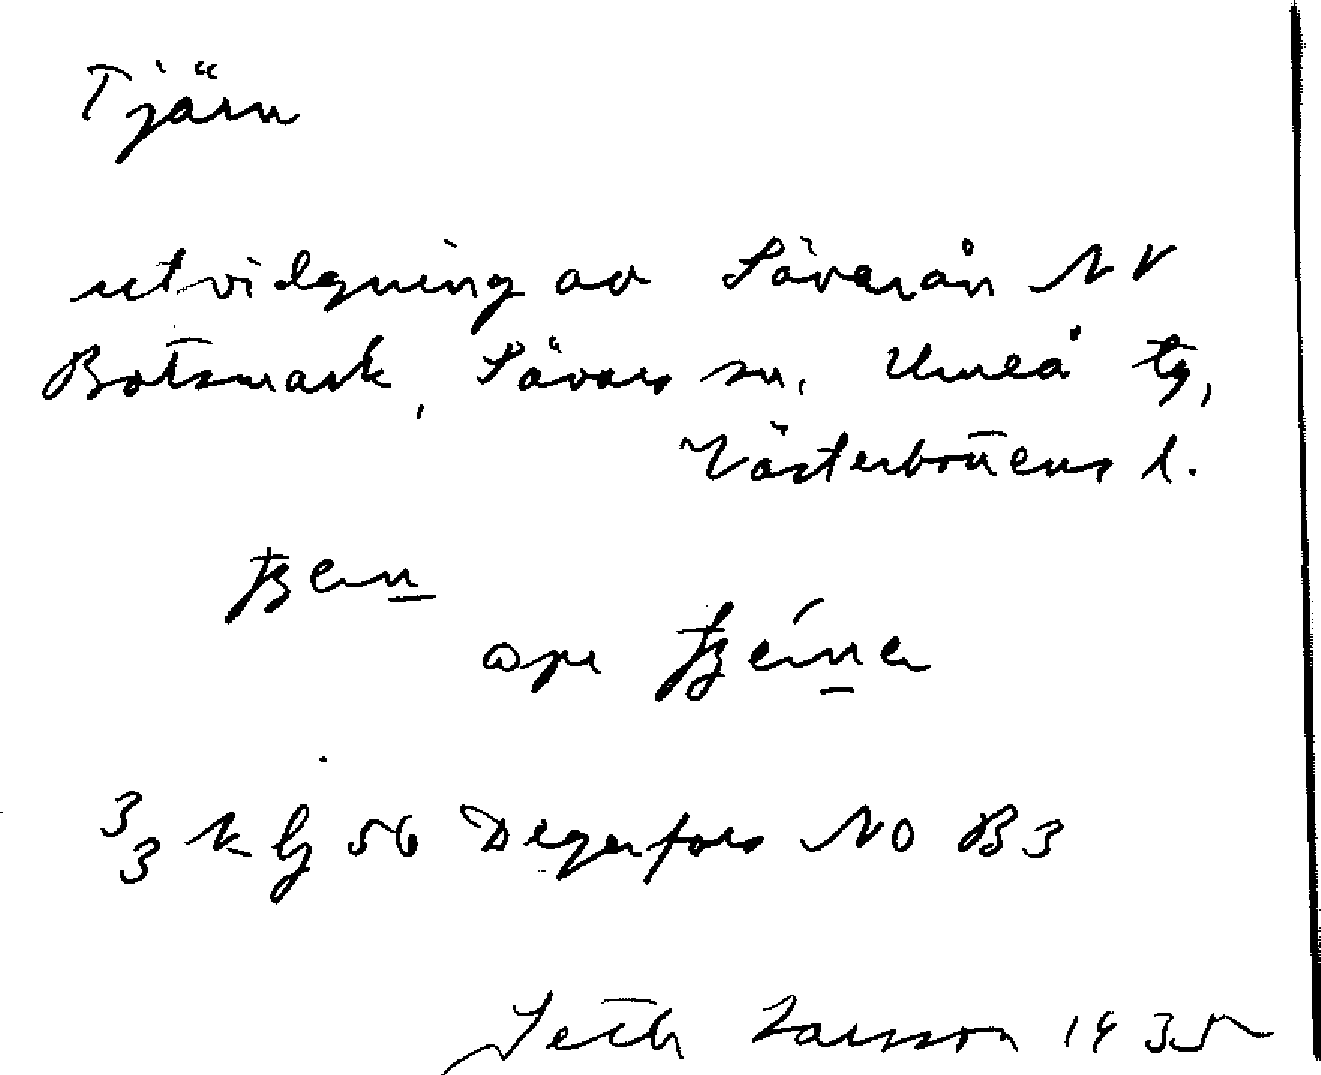 Tjärn
utvidgning av Sävarån NV
Botsmark, Sävars sn, Umeå tg,
Västerbottens l.
3/3 k bj 56 Degerfors NO B3
Seth Larsson 1935